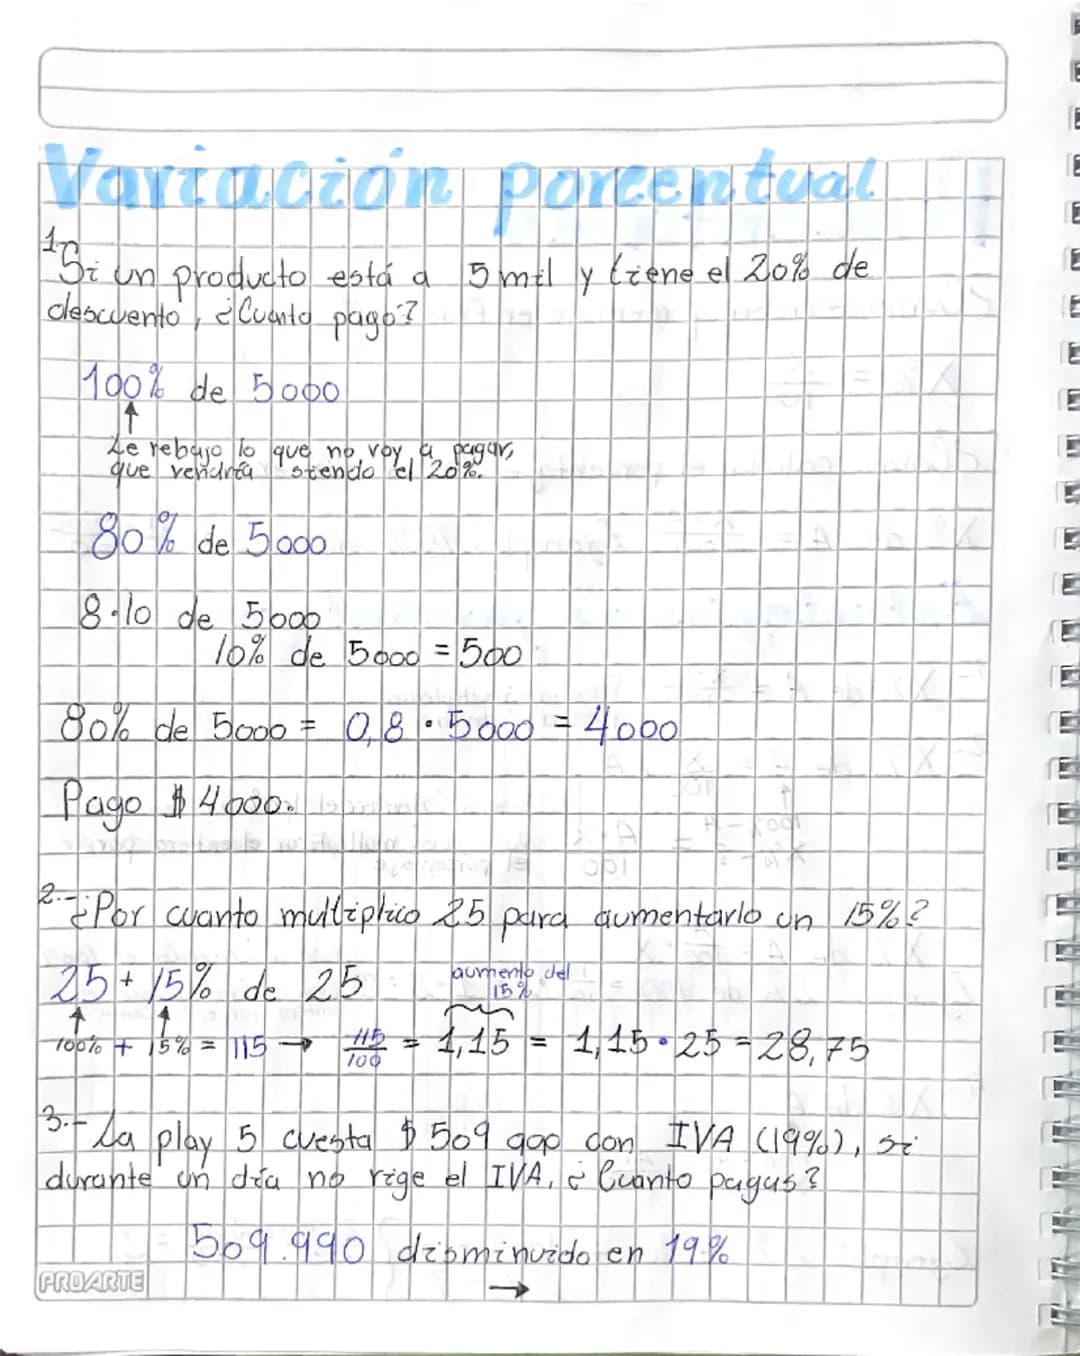 Variación porcentual
1.- Si un producto está a 5 mil y tiene el 20% de
descuento, ¿Cuanto pago?
100% de 5000
↑
Le rebajo lo que no voy a pagar,
que vendría siendo el 20%.
80% de 5000
8·10 de 5000
10% de 5000 = 500
80% de 5000 = 0,8 · 5000 = 4000
Pago $4000.
2.- ¿Por cuanto multiplico 25 para aumentarlo un 15%?
25 + 15% de 25
aumento del
15%
↑ ↑
100% + 15% = 115 → 115/100 = 1,15 = 1,15 · 25 = 28,75
3.- La play 5 cuesta $509 990 con IVA (19%), si
durante un día no rige el IVA, ¿Cuanto pagas?
509.990 disminuido en 19%
→
PROARTE